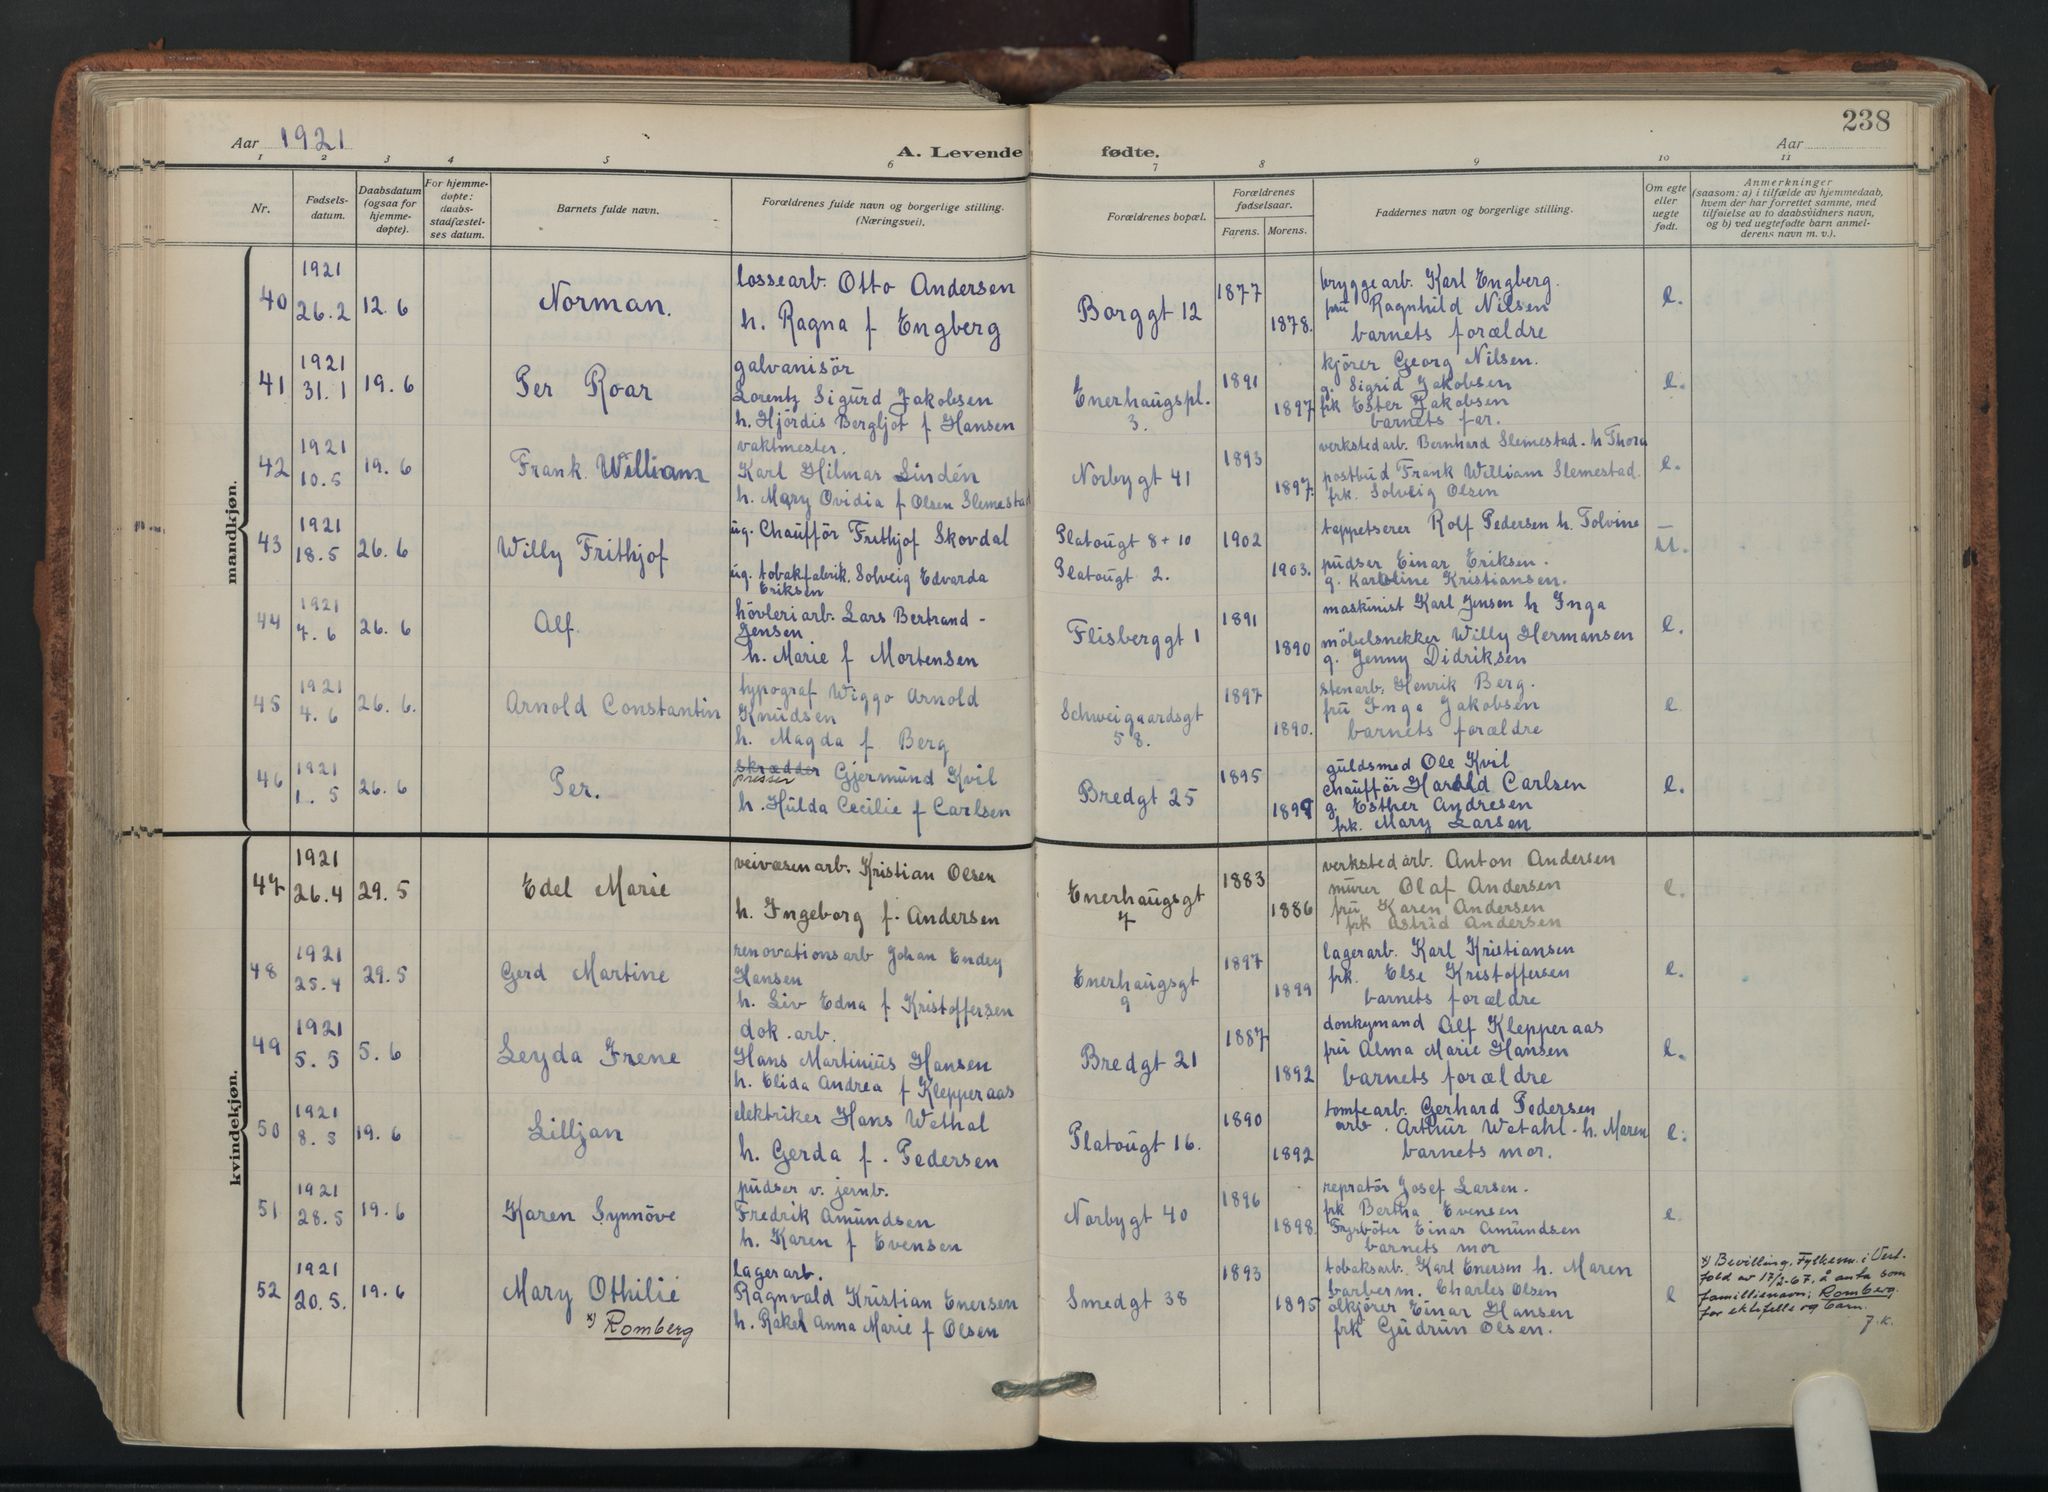 238
Aar 1921
A. Levende fødte.
Aar
1 2 3 4 5 6 7 8 9 10 11
Nr.
Fødsels-
datum.
Daabsdatum
(ogsaa for
hjemme-
døpte).
For hjemme-
døpte:
daabs-
stadfæstel-
ses datum.
Barnets fulde navn.
Forældrenes fulde navn og borgerlige stilling.
(Næringsvei).
Forældrenes bopæl.
Forældrenes
fødselsaar.
Farens. Morens.
Faddernes navn og borgerlige stilling.
Om egte
eller
uegte
født.
Anmerkninger
(saasom: a) i tilfælde av hjemmedaab,
hvem der har forrettet samme, med
tilføielse av to daabsvidners navn,
og b) ved uegtefødte barn anmel-
derens navn m. v.).
mandkjøn.
40
1921
26.2
12.6
Norman.
lossearb. Otto Andersen
h. Ragna f Engberg
Borggt 12
1877
1878.
bryggearb. Karl Engberg.
frü Ragnhild Nilsen
barnets forældre
e.
41
1921
31.1
19.6
Per Roar
galvanisör
Lorentz Sigurd Jakobsen
h. Hjórdis Bergljot f Hansen
Enerhaugspl.
3.
1891
1897
kjörer Georg Nilsen.
g. Sigrid Jakobsen
frk Ester Jakobsen
barnets far.
e.
42
1921
10.5
19.6
Frank William
vaktmester.
Karl Hilmar Lindén
h. Mary Ovidia f Olsen Slemestad
Norbygt 41
1893
1897.
verkstedarb. Bernhard Slemestad. h Thora
postbüd Frank William Slemestad.
frk. Solveig Olsen
e.
43
1921
18.5
26.6
Willy Frithjof
ug. Chaufför Frithjof Skovdal
ug. tobakfabrik. Solveig Edvarda
Eriksen
Platoügt 8 + 10
Platoügt 2.
1902
1903.
tappetserer Rolf Pedersen h. Tolvine
püdser Einar Eriksen.
g. Karoline Kristiansen.
—
U.
44
1921
7.6
26.6
Alf.
hövleriarb. Lars Bertrand -
Jensen
h. Marie f Mortensen
Flisberggt 1
1891
1890
maskinist Karl Jensen h Inga
möbelsnekker Willy Hermansen
g. Jenny Didriksen
e.
45
1921
4.6
26.6.
Arnold Constantin
typograf Wiggo Arnold
Knüdsen
h. Magda f. Berg
Schweigaardsgt
58.
1897
1890.
stenarb. Henrik Berg.
frü Inga Jakobsen
barnets forældre
e
46
1921
1.5
26.6
Per.
skrædder Gjermünd Kvil
presser
h. Hülda Cecilie f Carlsen
Bredgt 25
1895
1899
güldsmed Ole Kvil
chaufför Harald Carlsen
g. Esther Andresen
frk. Mary Larsen
e.
kvindekjøn.
47
1921
26.4
29.5
Edel Marie
veivæsenarb. Kristian Olsen
h. Ingeborg f. Andersen
Enerhaügsgt
7
1883
1886
verkstedarb. Anton Andersen
mürer Olaf Andersen
frü Karen Andersen
frk Astrid Andersen
e.
48
1921
25.4
29.5
Gerd Martine
renovationsarb Johan Endey
Hansen
h. Liv Edna f Kristoffersen
Enerhaügsgt
9
1897
1899
lagerarb. Karl Kristiansen
frk. Else Kristoffersen
barnets forældre
e.
49
1921
5.5
5.6
Leyda Irene
dok. arb.
Hans Martinius Hansen
h. Elida Andrea f Klepperaas
Bredgt 21
1887
1892
donkymand Alf Klepperaas
frü Alma Marie Hansen
barnets forældre
e.
50
1921
8.5
19.6
Lilljan
elektriker Hans Wethal
h. Gerda f. Pedersen
Platoügt 16.
1890
1892
tomtearb. Gerhard Pedersen
arb. Arthür Wetahl. h. Maren
barnets mor.
e.
51
1921
28.5
19.6
Karen Synnöve
püdser v. jernb.
Fredrik Amündsen
h. Karen f Evensen
Norbygt 40
1896
1898.
repratör Josef Larsen.
frk Bertha Evensen
Fyrböter Einar Amündsen
barnets mor
e.
52
1921
20.5.
19.6
Mary Othilie
x) Romberg
lagerarb.
Ragnvald Kristian Enersen
h. Rakel Anna Marie f Olsen
Smedgt 38
1893
1895
tobaksarb. Karl Enersen h. Maren
barberm. Charles Olsen
ölkjörer Einar Hansen
frk Güdrün Olsen.
e
x) Bevilling, Fylkesm. i Vest-
fold av 17/2-67, å anta som
familienavn: Romberg.
for ektefelle og barn.
J.K.